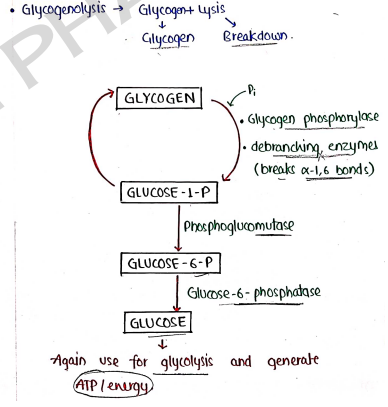 • Glycogenolysis → Glycogen + Lysis
Glycogen Breakdown.
GLYCOGEN
Pi
• Glycogen phosphorylase
• debranching enzymes
(breaks α-1,6 bonds)
GLUCOSE-1-P
Phosphoglucomutase
GLUCOSE-6-P
Glucose-6-phosphatase
GLUCOSE
Again use for glycolysis and generate
ATP/energy